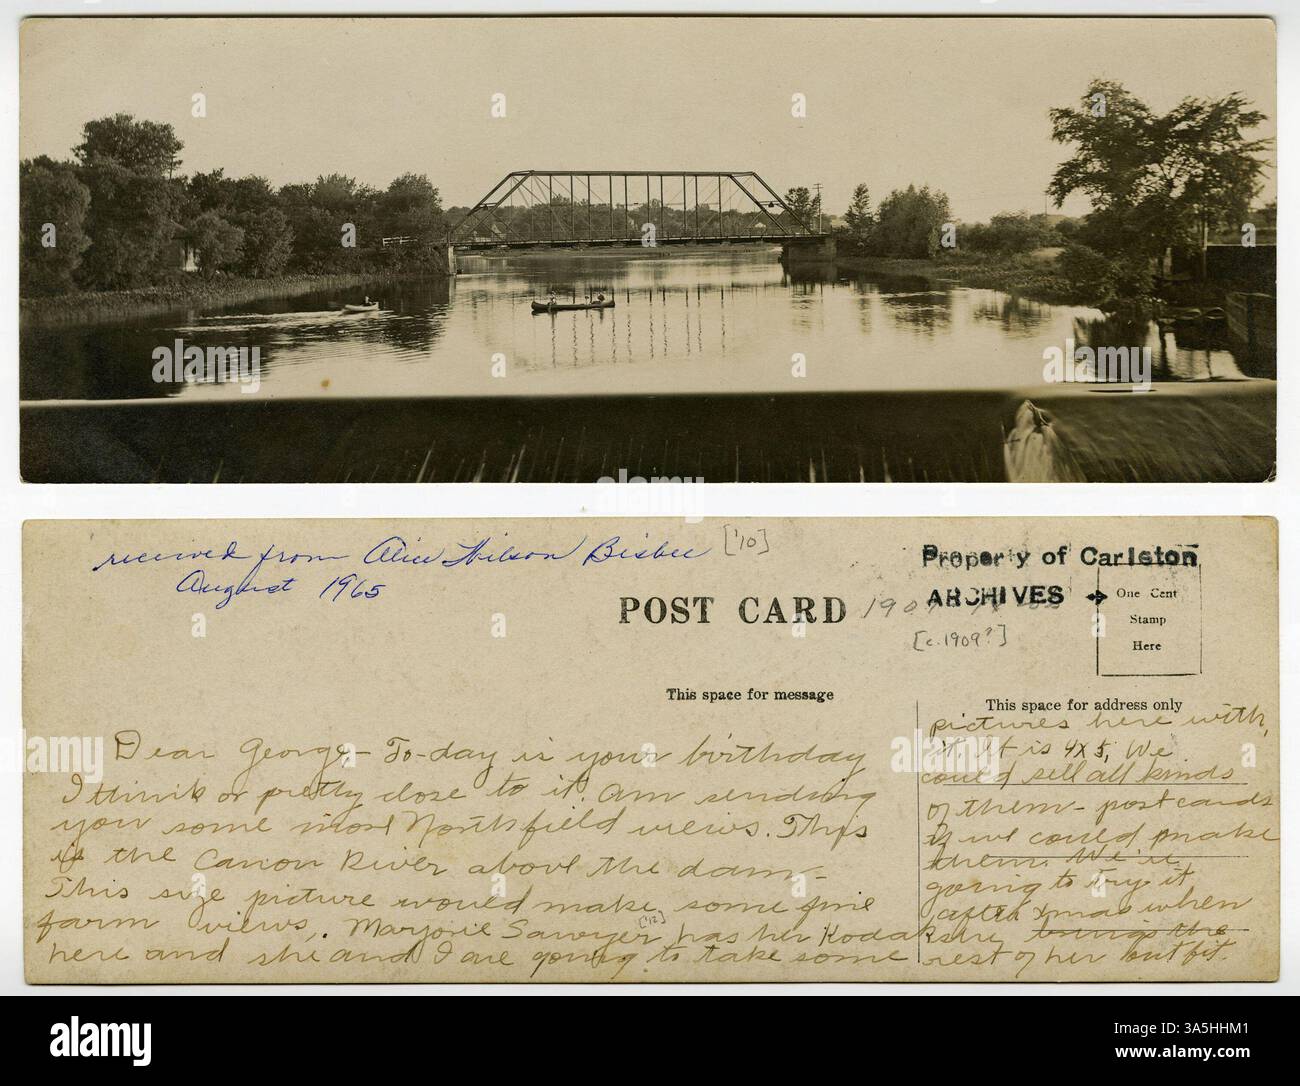 received from Alice Wilson Bisbee ['10]
August 1965
Property of Carleton
ARCHIVES
POST CARD
[c. 1909?]
One Cent
Stamp
Here
This space for message
This space for address only
Dear George,- To-day is your birthday
I think or pretty close to it. Am sending
you some more Northfield views. This
is the Canon River above the dam-
This size picture would make some fine
farm views. Marjorie Sawyer ['12] has her Kodak
here and she and I are going to take some
pictures here with
it. It is 4x5, We
could sell all kinds
of them- post cards
if we could make
them. We're
going to try it
after xmas when
she brings the
rest of her outfit.
alamy
Image ID: 3A5HHM1
www.alamy.com